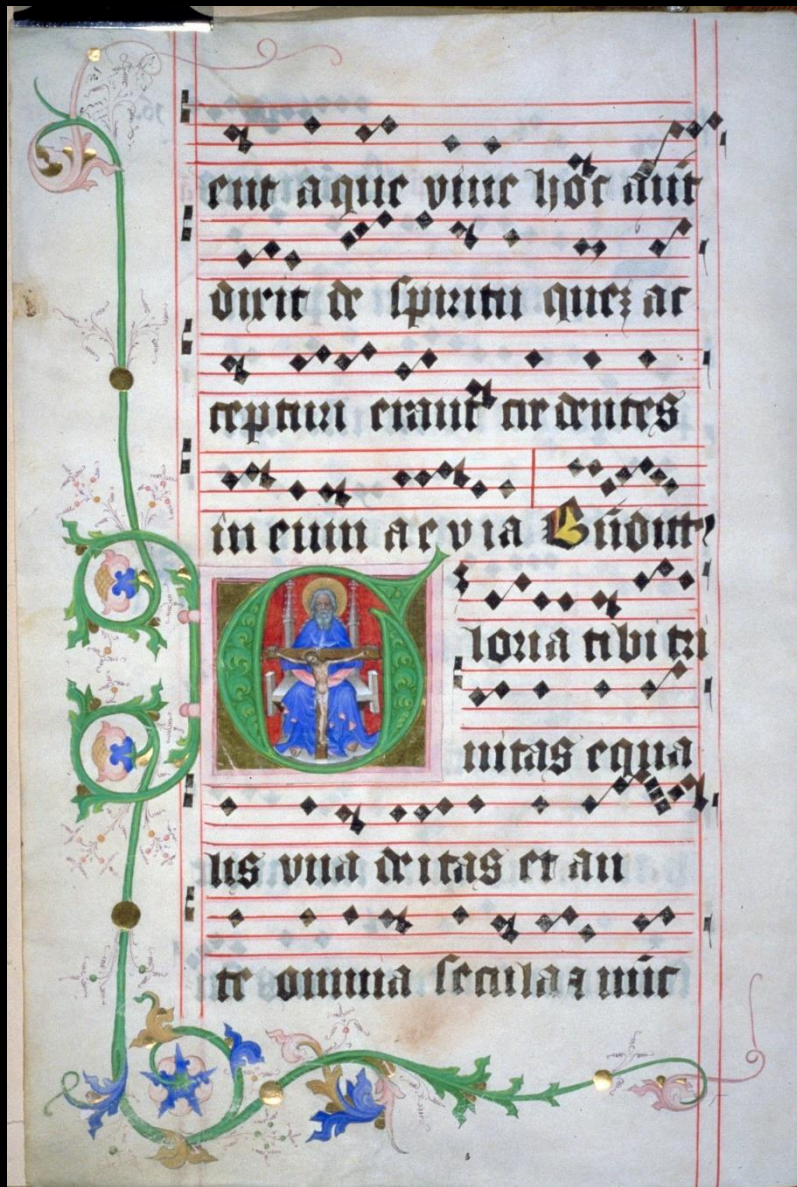 ent aque viue hoc aut
dixit de spiritu quez ac
cepturi erant credentes
in eum aevia
loria tibi tri
nitas equa
lis vna deitas et an
te omnia secula et nunc